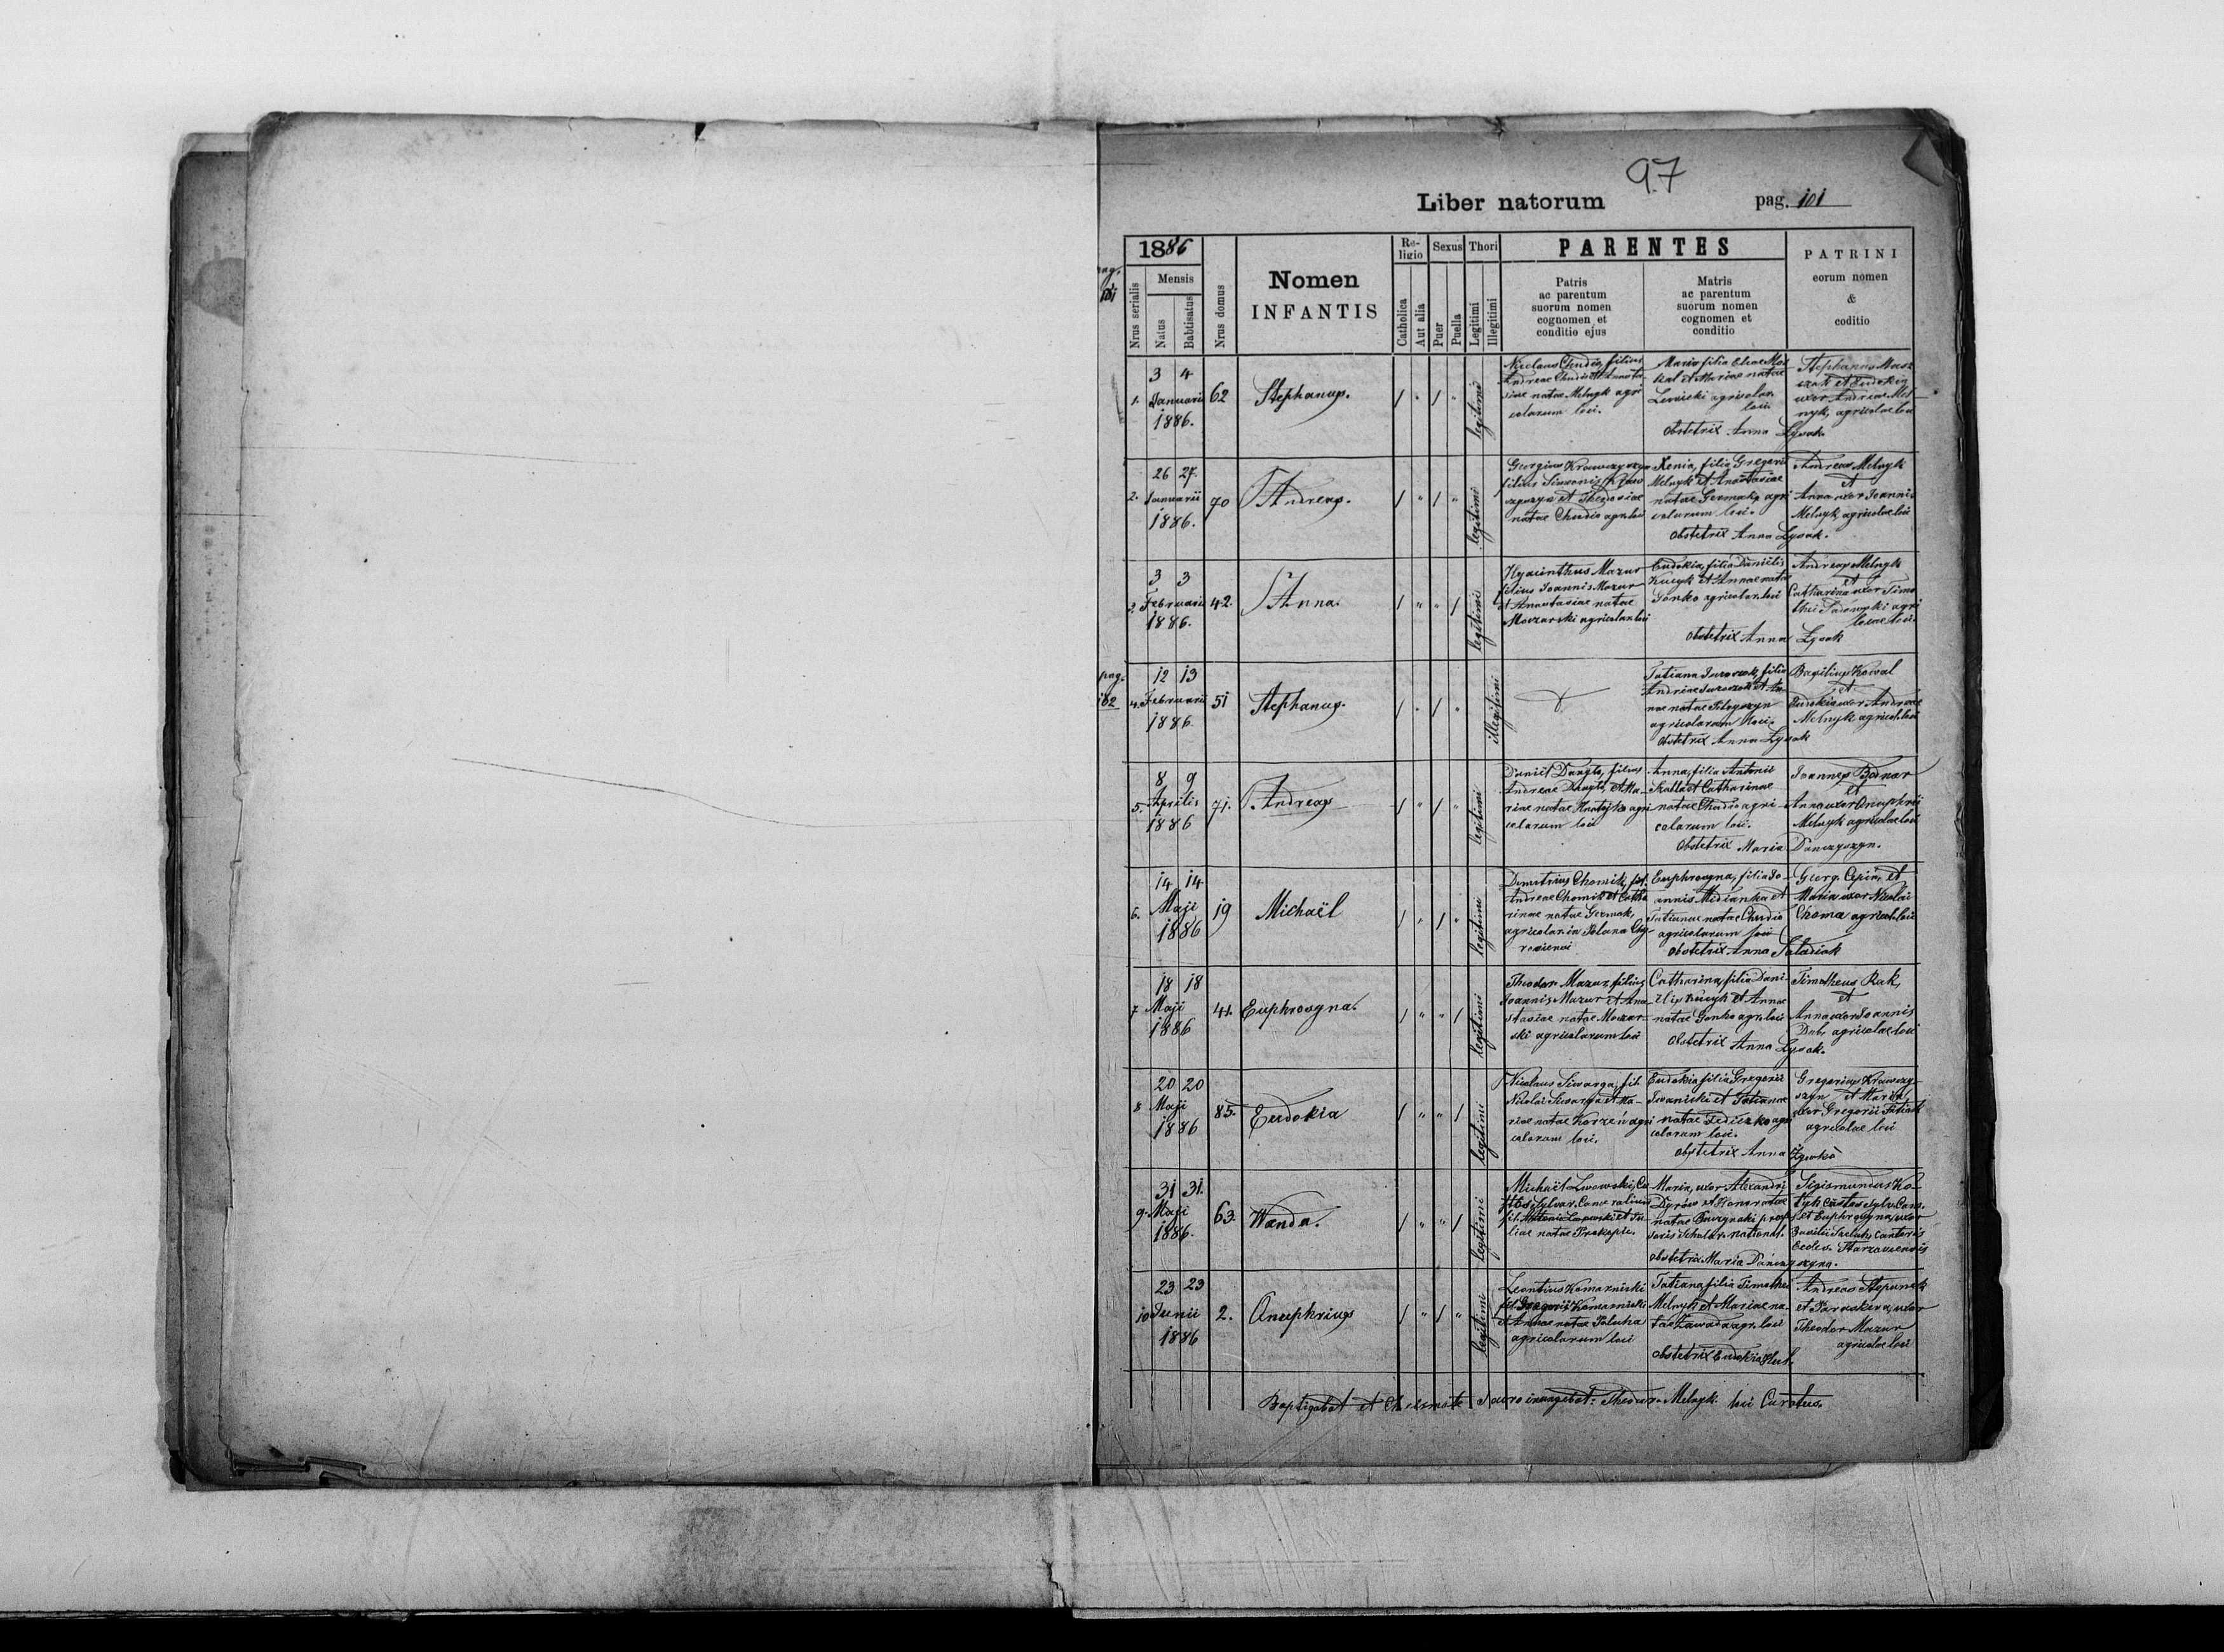 97
Liber natorum pag. 101
1886
Mensis
Nrus serialis
Natus
Babtisatus
Nrus domus
Nomen
INFANTIS
Religio
Catholica
Aut alia
Sexus
Puer
Puella
Thori
Legitimi
Illegitimi
PARENTES
Patris
ac parentum
suorum nomen
cognomen et
conditio ejus
Matris
ac parentum
suorum nomen
cognomen et
conditio
PATRINI
eorum nomen
&
coditio
pag.
101
1.
3 4
Januarii
1886.
62
Stephanus.
legitimi
Nicolaus Chudio, filius
Andreae Chudio et Anasta-
siae natae Melnyk agri
colarum loci.
Maria filia Eliae
et Mariae natae
agricolar.
loci.
Obstetrix Anna Lysak.
Stephanus
et Eudokia
uxor Andreae Mel-
nyk, agricolae loci
2.
26 27.
Januarii
1886.
70
Andreas.
legitimi
Georgius Krawczyszyn
filius Simeonis Kraw
czyszyn et Theodosiae
natae Chudio agr. loci
Xenia, filia Gregorii
Melnyk et Anastasiae
natae Germak, agri
colarum loci.
Obstetrix Anna Lysak.
Andreas Melnyk
et
Anna uxor Joannis
Melnyk agricolae loci
3.
3 3
Februarii
1886.
42.
Anna.
legitimi
Hyacinthus Mazur
filius Joannis Mazur
et Anastasiae natae
Moczarski agricolar. loci
Eudokia, filia Daniëlis
Kucyk et Annae natae
Gonko agricolar. loci
Obstetrix Anna Lysak
Andreas Melnyk
et
Catharina uxor Timo
thei Sadowski agri
colae loci.
pag.
102
4.
12 13
Februarii
1886.
51
Stephanus.
illegitimi
Tatiana Jurczak, filia
Andreae Jurczak et An-
nae natae
agricolarum loci.
Obstetrix Anna Lysak
Basilius Kowal
et
Eudokia uxor Andreae
Melnyk agricol. loci
5.
8 9
Aprilis
1886
71.
Andreas
legitimi
Daniël Dungto, filius
Andreae et Ma-
riae natae agri
colarum loci
Anna, filia Antonii
et Catharinae
natae Chudio agri-
colarum loci.
Obstetrix Maria Danczyszyn.
Joannes Bodnar
et
Anna uxor Onuphrii
Melnyk agricolae loci
6.
14 14
Maji
1886
19
Michaël
legitimi
Demitrius Chomik, fil.
Andreae Chomik et Catha
rinae natae Germak,
agricolar. in Polana Chy-
roviensi
Euphrosyna, filia Jo-
annis Midianka et
Tatianae natae Chudio
agricolarum loci
Obstetrix Anna
Georg. Cepin, et
Maria uxor Nicolai
Choma agricol. loci
7
18 18
Maji
1886
41.
Euphrosyna.
legitimi
Theodor. Mazur, filius
Joannis Mazur et Ana-
stasiae natae Moczar-
ski agricolarum loci
Catharina, filia Dani-
elis Kucyk et Annae
natae Gonko agr. loci
Obstetrix Anna Lysak.
Timotheus Rak,
et
Anna uxor Joannis
Dub, agricolae loci
8
20 20
Maji
1886
85.
Eudokia
legitimi
Nicolaus Siwarga, fil.
Nicolai Siwarga et Ma-
riae natae Korzeń agri
colarum loci.
Eudokia filia Gregorii
Iwanicki et Tatianae
natae Fediczko agri
colarum loci.
Obstetrix Anna
Gregorius Krawczy-
szyn et Maria,
uxor Gregorii
agricolae loci
9.
31 31.
Maji
1886.
63.
Wanda.
legitimi
Michaël Lwowski, Cu-
stos Sylvar. Cameralium
fil. Antonii Lwowski et Ju-
liae natae Prokopic.
Maria, uxor Alexandri
Dyrów et Honoratae
natae
soris Scholar. national.
Obstetrix Maria
Sigismundus Ko-
tyk Custos Sylv. Cam.
et Euphrosyna, uxor
Basilii cantoris
Eccles. Starzaviensis
10
23 23
Junii
1886
2.
Onuphrius
legitimi
Leontius Komarnicki
fil. Gregorii Komarnicki
et Annae natae Paluha
agricolarum loci
Tatiana filia Timothei
Melnyk et Mariae na-
tae Zawada agr. loci
Obstetrix Eudokia
Andreas Stepanek
et Paraskeva, uxor
Theodor Mazur
agricolae loci
Baptizabat et Chrismate Sacro inungebat: Theodor. Melnyk. loci Curatus.